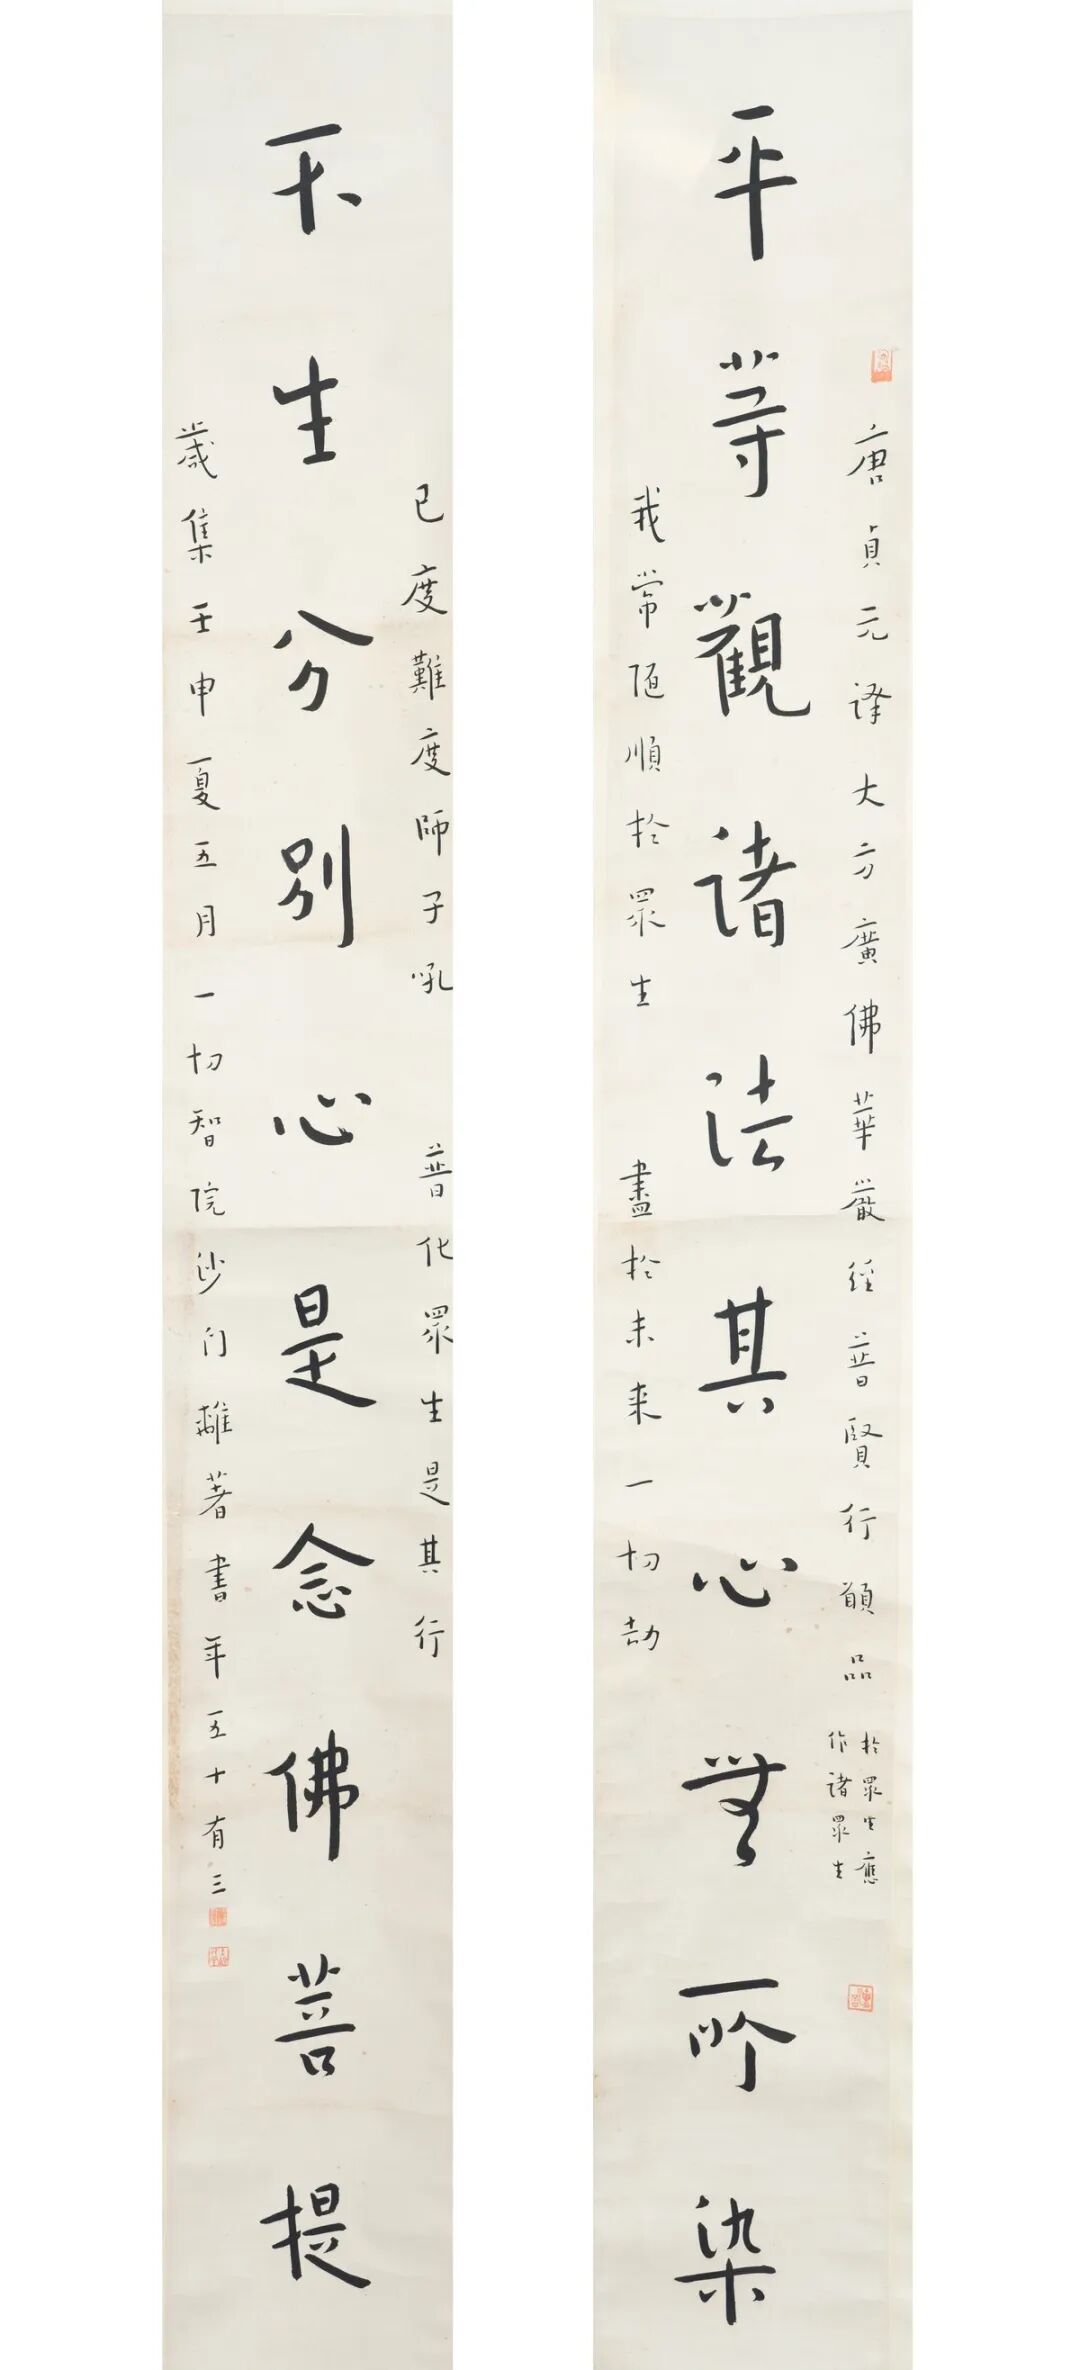 唐貞元譯大方廣佛華嚴經普賢行願品
於眾生應
作諸眾生
平等觀諸法其心無所染
我常隨順於眾生 盡於未來一切劫
已度難度師子吼 普化眾生是其行
不生分別心是念佛菩提
歲集壬申夏五月一切智院沙門離著書年五十有三